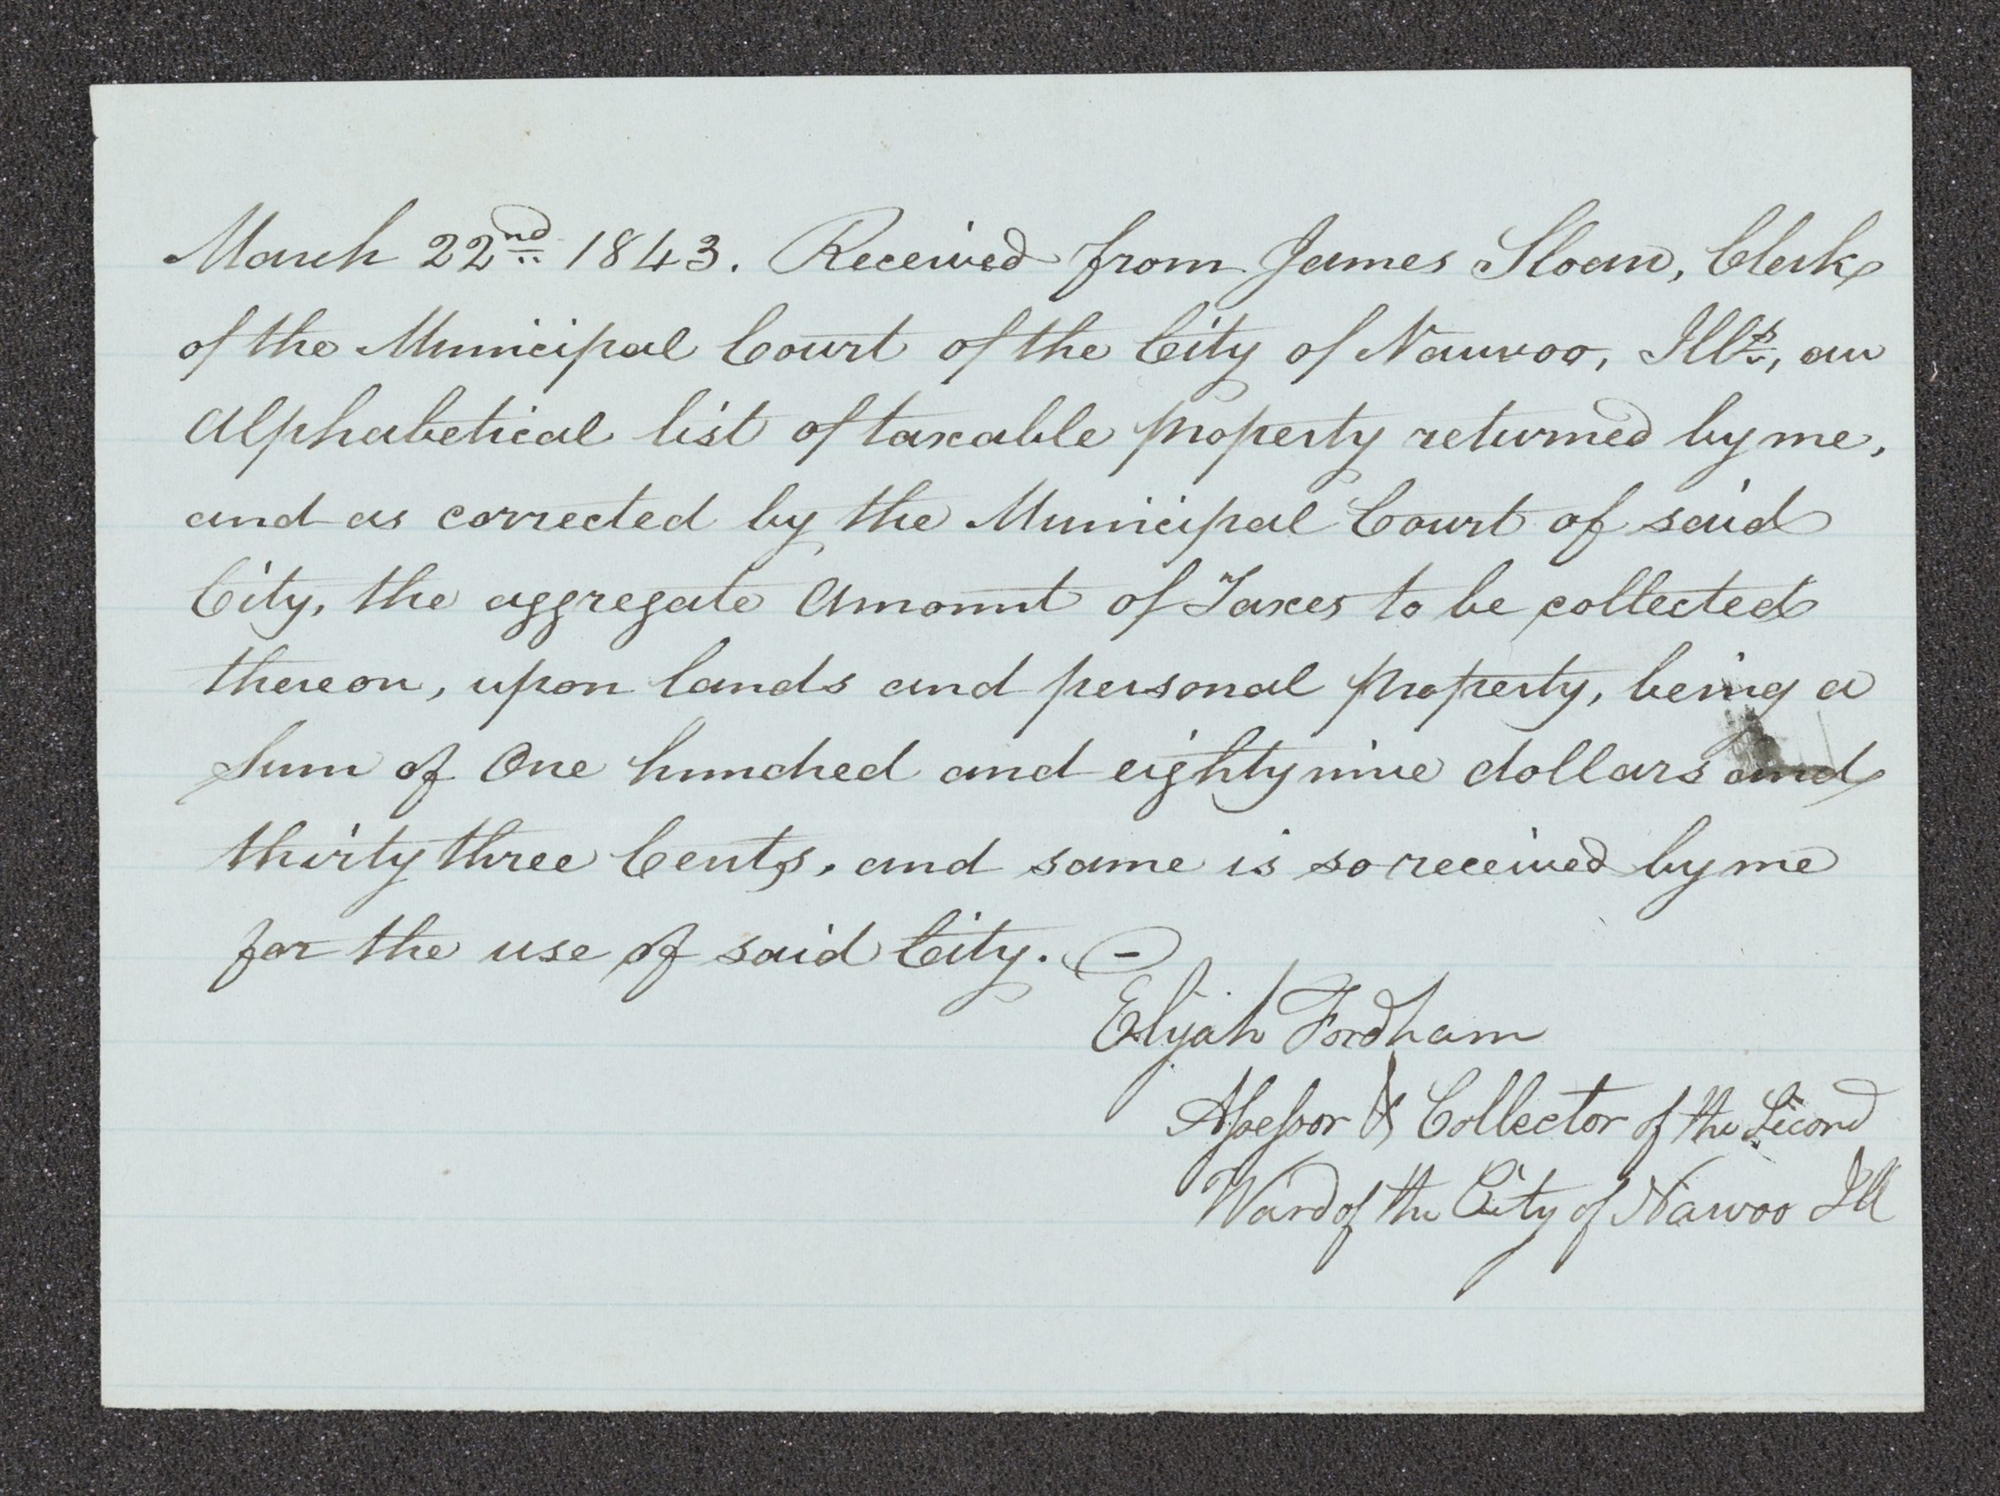 March 22nd 1843. Received from James Sloan, Clerk
of the Municipal Court of the City of Nauvoo, Ills, an
Alphabetical list of taxable property returned by me,
and as corrected by the Municipal Court of said
City, the aggregate Amount of Taxes to be collected
thereon, upon lands and personal property, being a
Sum of One hundred and eighty nine dollars and
thirty three Cents, and same is so received by me
for the use of said City. —
Elijah Fordham
Assessor & Collector of the Second
Ward of the City of Nauvoo Ill